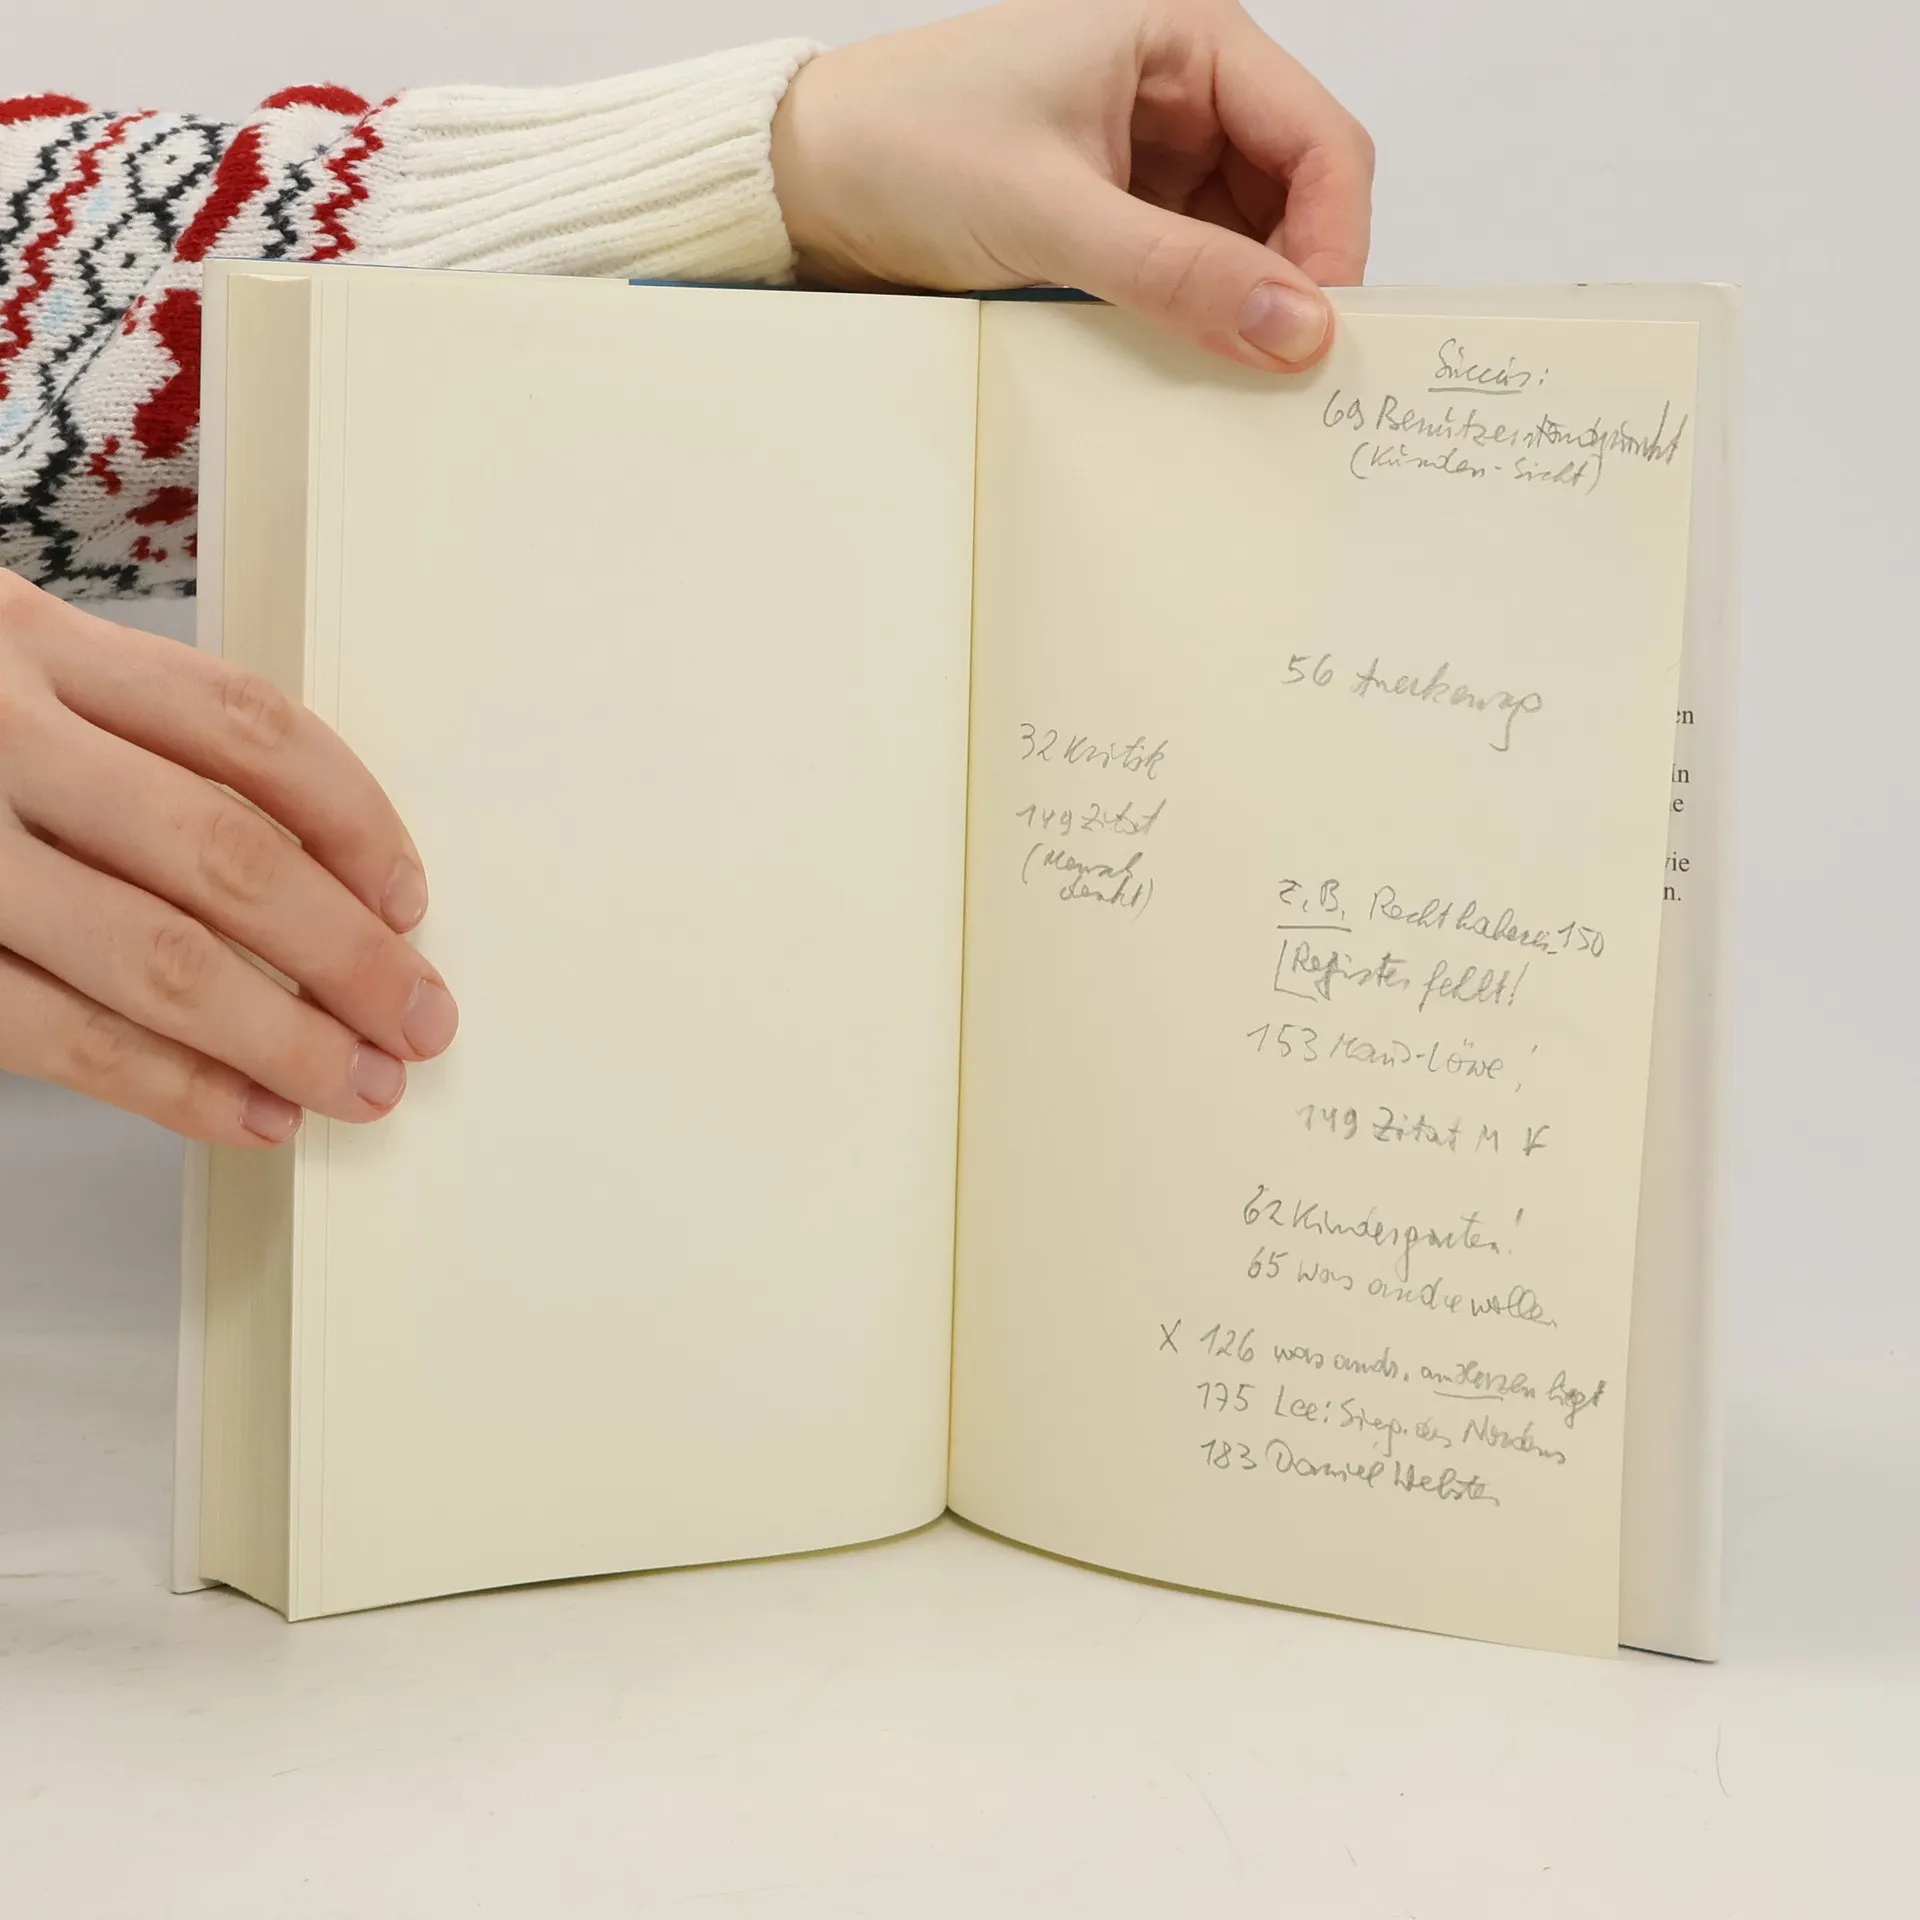 Succus:
69 Benützerstandpunkt
(Kunden-Sicht)
56 Anerkennung
32 Kritik
149 Zitat
(Mensch
denkt)
z.B. Rechthaberei 150
Register fehlt!
153 Haus-Löwe!
149 Zitat M
62 Kindergarten!
65 was andre wollen
X 126 was andr. am Herzen liegt
175 Lee: Sieg. des Nordens
183 Daniel Webster
en
In
e
wie
n.